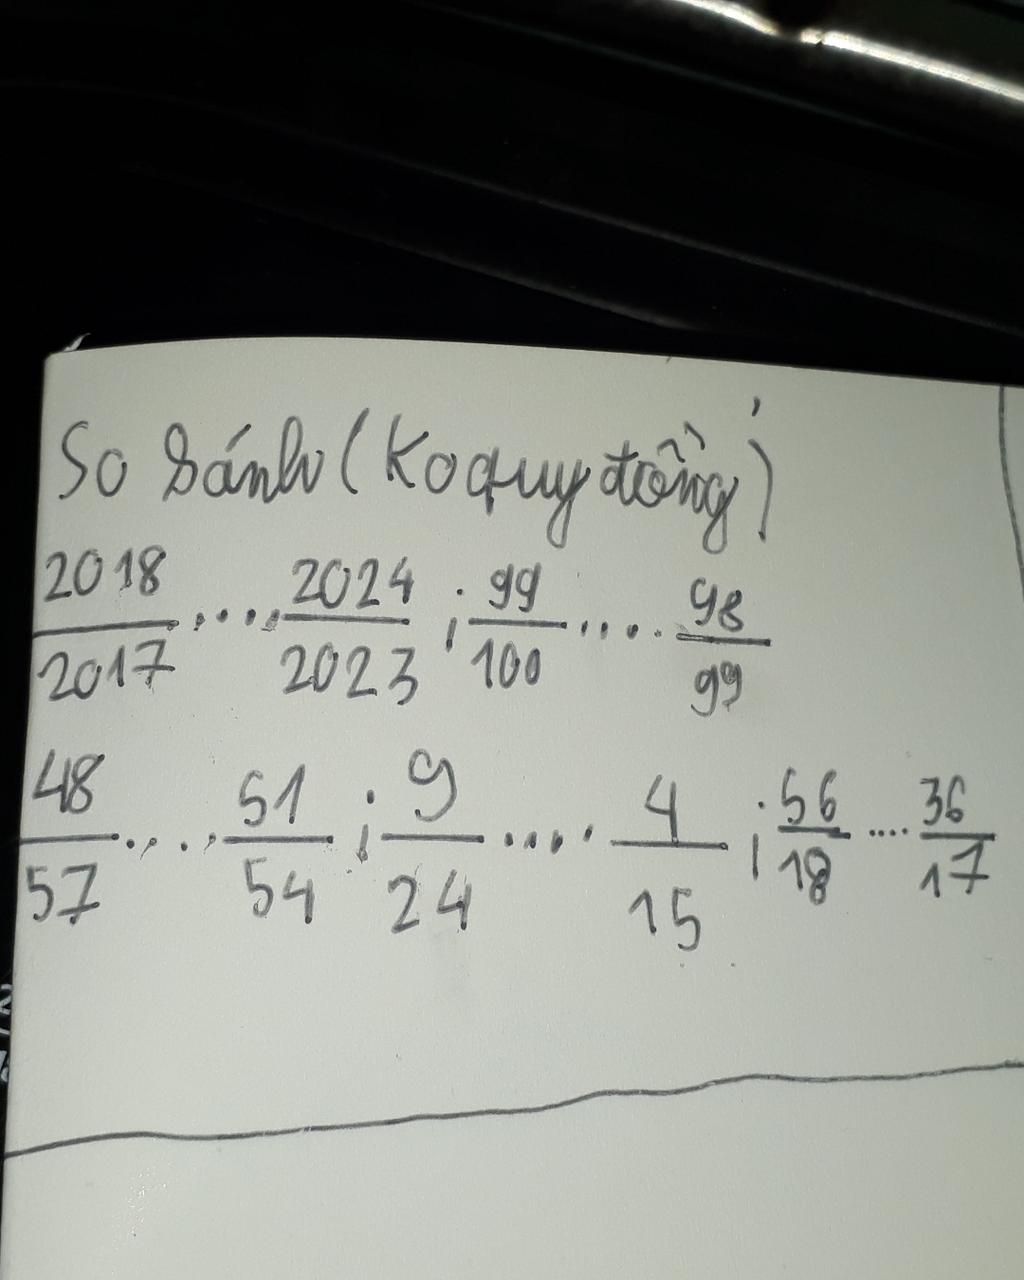 So Sánh (Ko quy đồng)
2018/2017 ..... 2024/2023 ; 99/100 ..... 98/99
48/57 ..... 51/54 ; 9/24 ..... 4/15 ; 56/18 .... 36/17